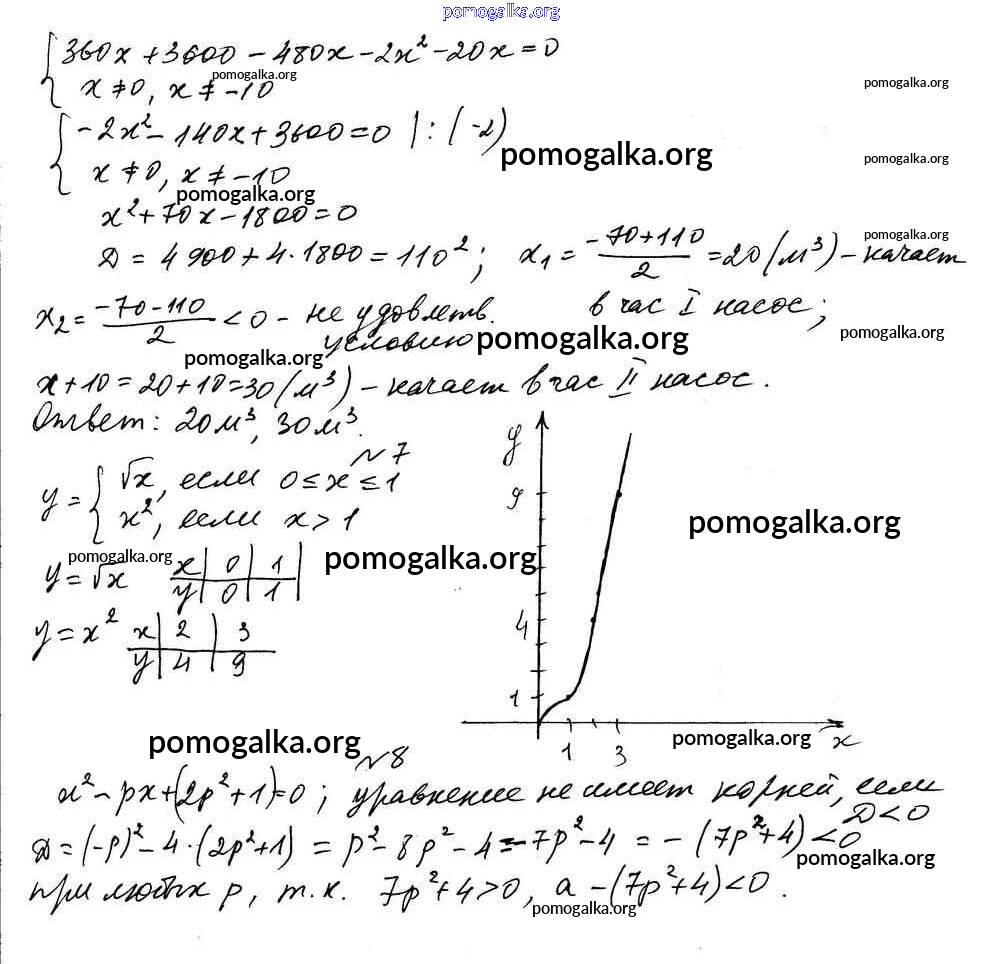 pomogalka.org
{ 360x + 3600 − 480x − 2x² − 20x = 0
pomogalka.org
x ≠ 0, x ≠ −10
pomogalka.org
{ −2x² − 140x + 3600 = 0 | : (−2)
pomogalka.org
pomogalka.org
x ≠ 0, x ≠ −10
pomogalka.org
x² + 70x − 1800 = 0
pomogalka.org
D = 4900 + 4·1800 = 110²; x₁ = (−70+110)/2 = 20 (м³) – качает
x₂ = (−70−110)/2 < 0 – не удовлетв. в час I насос;
условию
pomogalka.org
pomogalka.org
pomogalka.org
x + 10 = 20 + 10 = 30 (м³) – качает в час II насос.
Ответ: 20 м³, 30 м³.
№7
y = { √x, если 0 ≤ x ≤ 1
x², если x > 1
pomogalka.org
pomogalka.org
pomogalka.org
y = √x x | 0 | 1 |
y | 0 | 1 |
y = x² x | 2 | 3
y | 4 | 9
y
9
4
1
1 3 x
pomogalka.org
pomogalka.org
№8
x² − px + (2p² + 1) = 0; уравнение не имеет корней, если
D < 0
D = (−p)² − 4·(2p² + 1) = p² − 8p² − 4 = −7p² − 4 = −(7p² + 4) < 0
pomogalka.org
при любых p, т.к. 7p² + 4 > 0, а −(7p² + 4) < 0.
pomogalka.org